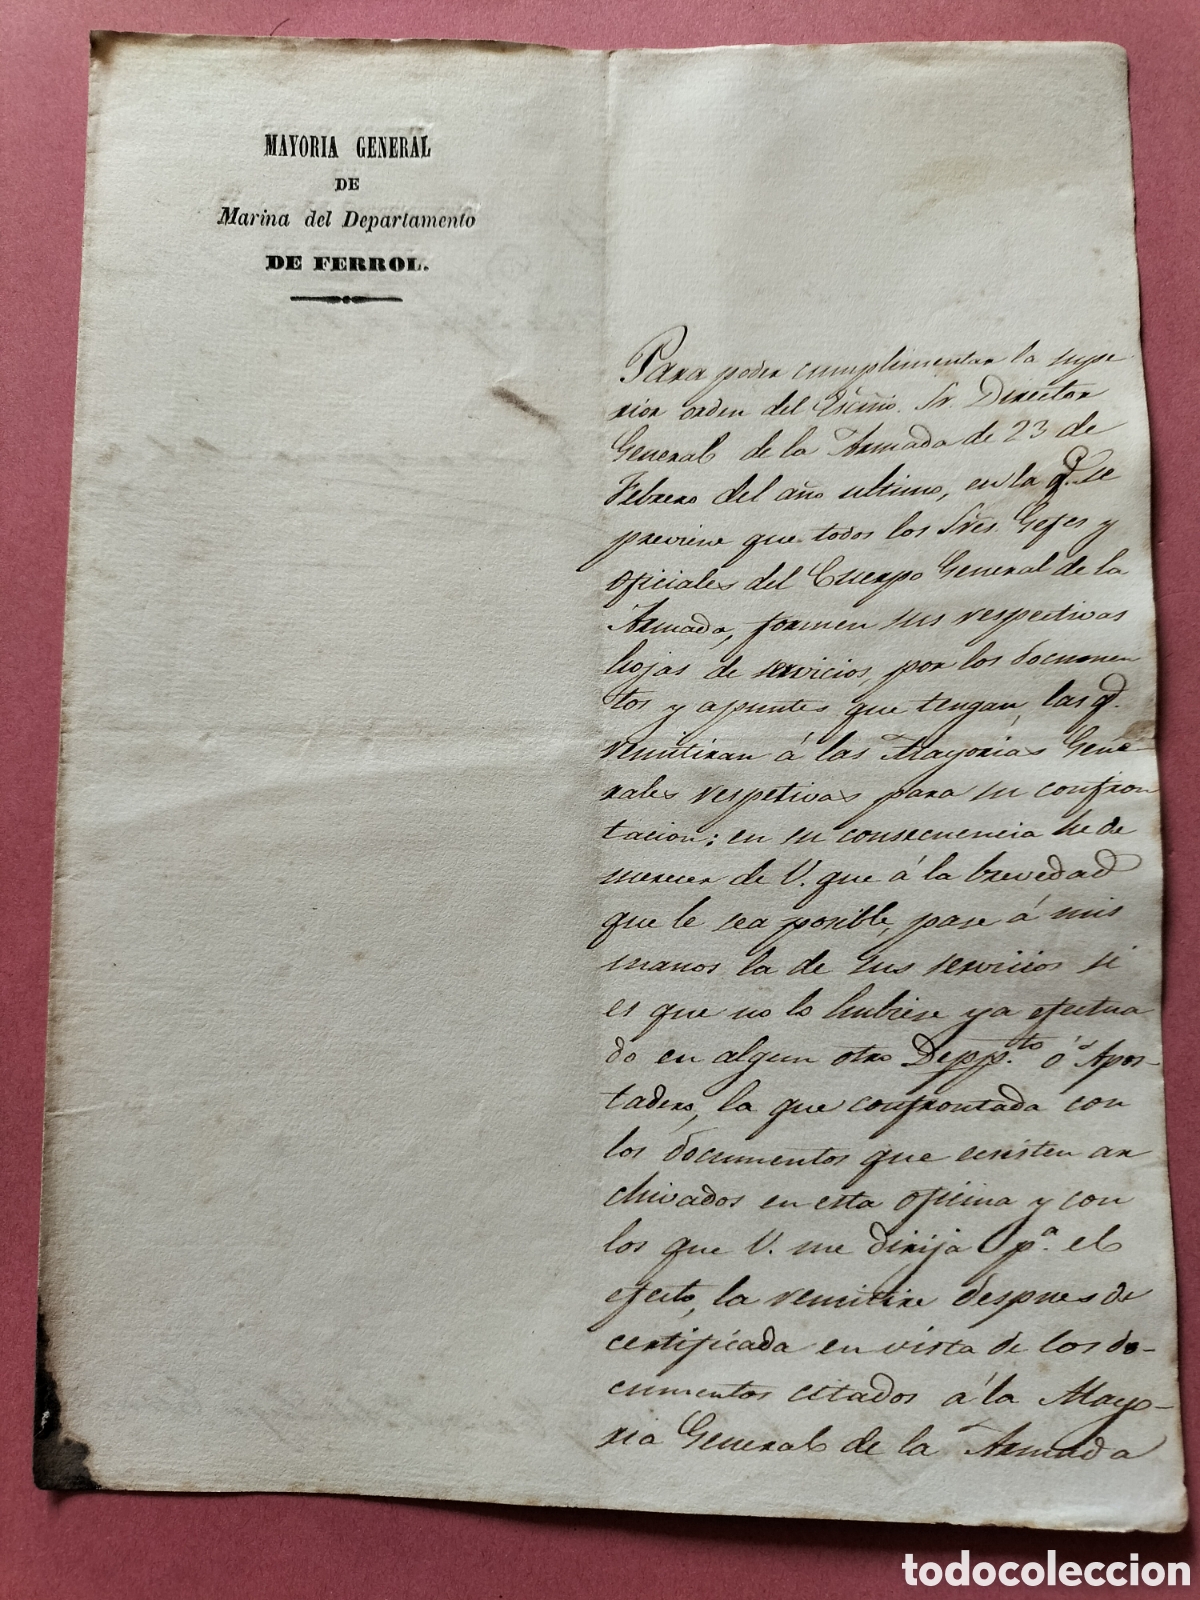 MAYORIA GENERAL
DE
Marina del Departamento
DE FERROL.
Para poder cumplimentar la supe
rior orden del Escmo. Sr. Director
General de la Armada de 23 de
Febrero del año ultimo, en la q. se
previene que todos los Sres. Gefes y
oficiales del Cuerpo General de la
Armada, formen sus respectivas
hojas de servicios, por los documen
tos y apuntes que tengan, las q.
remitiran á las Mayorias Gene
rales respetivas para su confron
tacion; en su consecuencia he de
merecer de V. que á la brevedad
que le sea posible, pase á mis
manos la de sus servicios si
es que no lo hubiese ya efectua
do en algun otro Depp.to ó Apos-
tadero, la que confrontada con
los documentos que ecsisten ar
chivados en esta oficina y con
los que V. me dirija p.a el
efecto, la remitiré despues de
certificada en vista de los do-
cumentos citados á la Mayo-
ria General de la Armada
todocoleccion